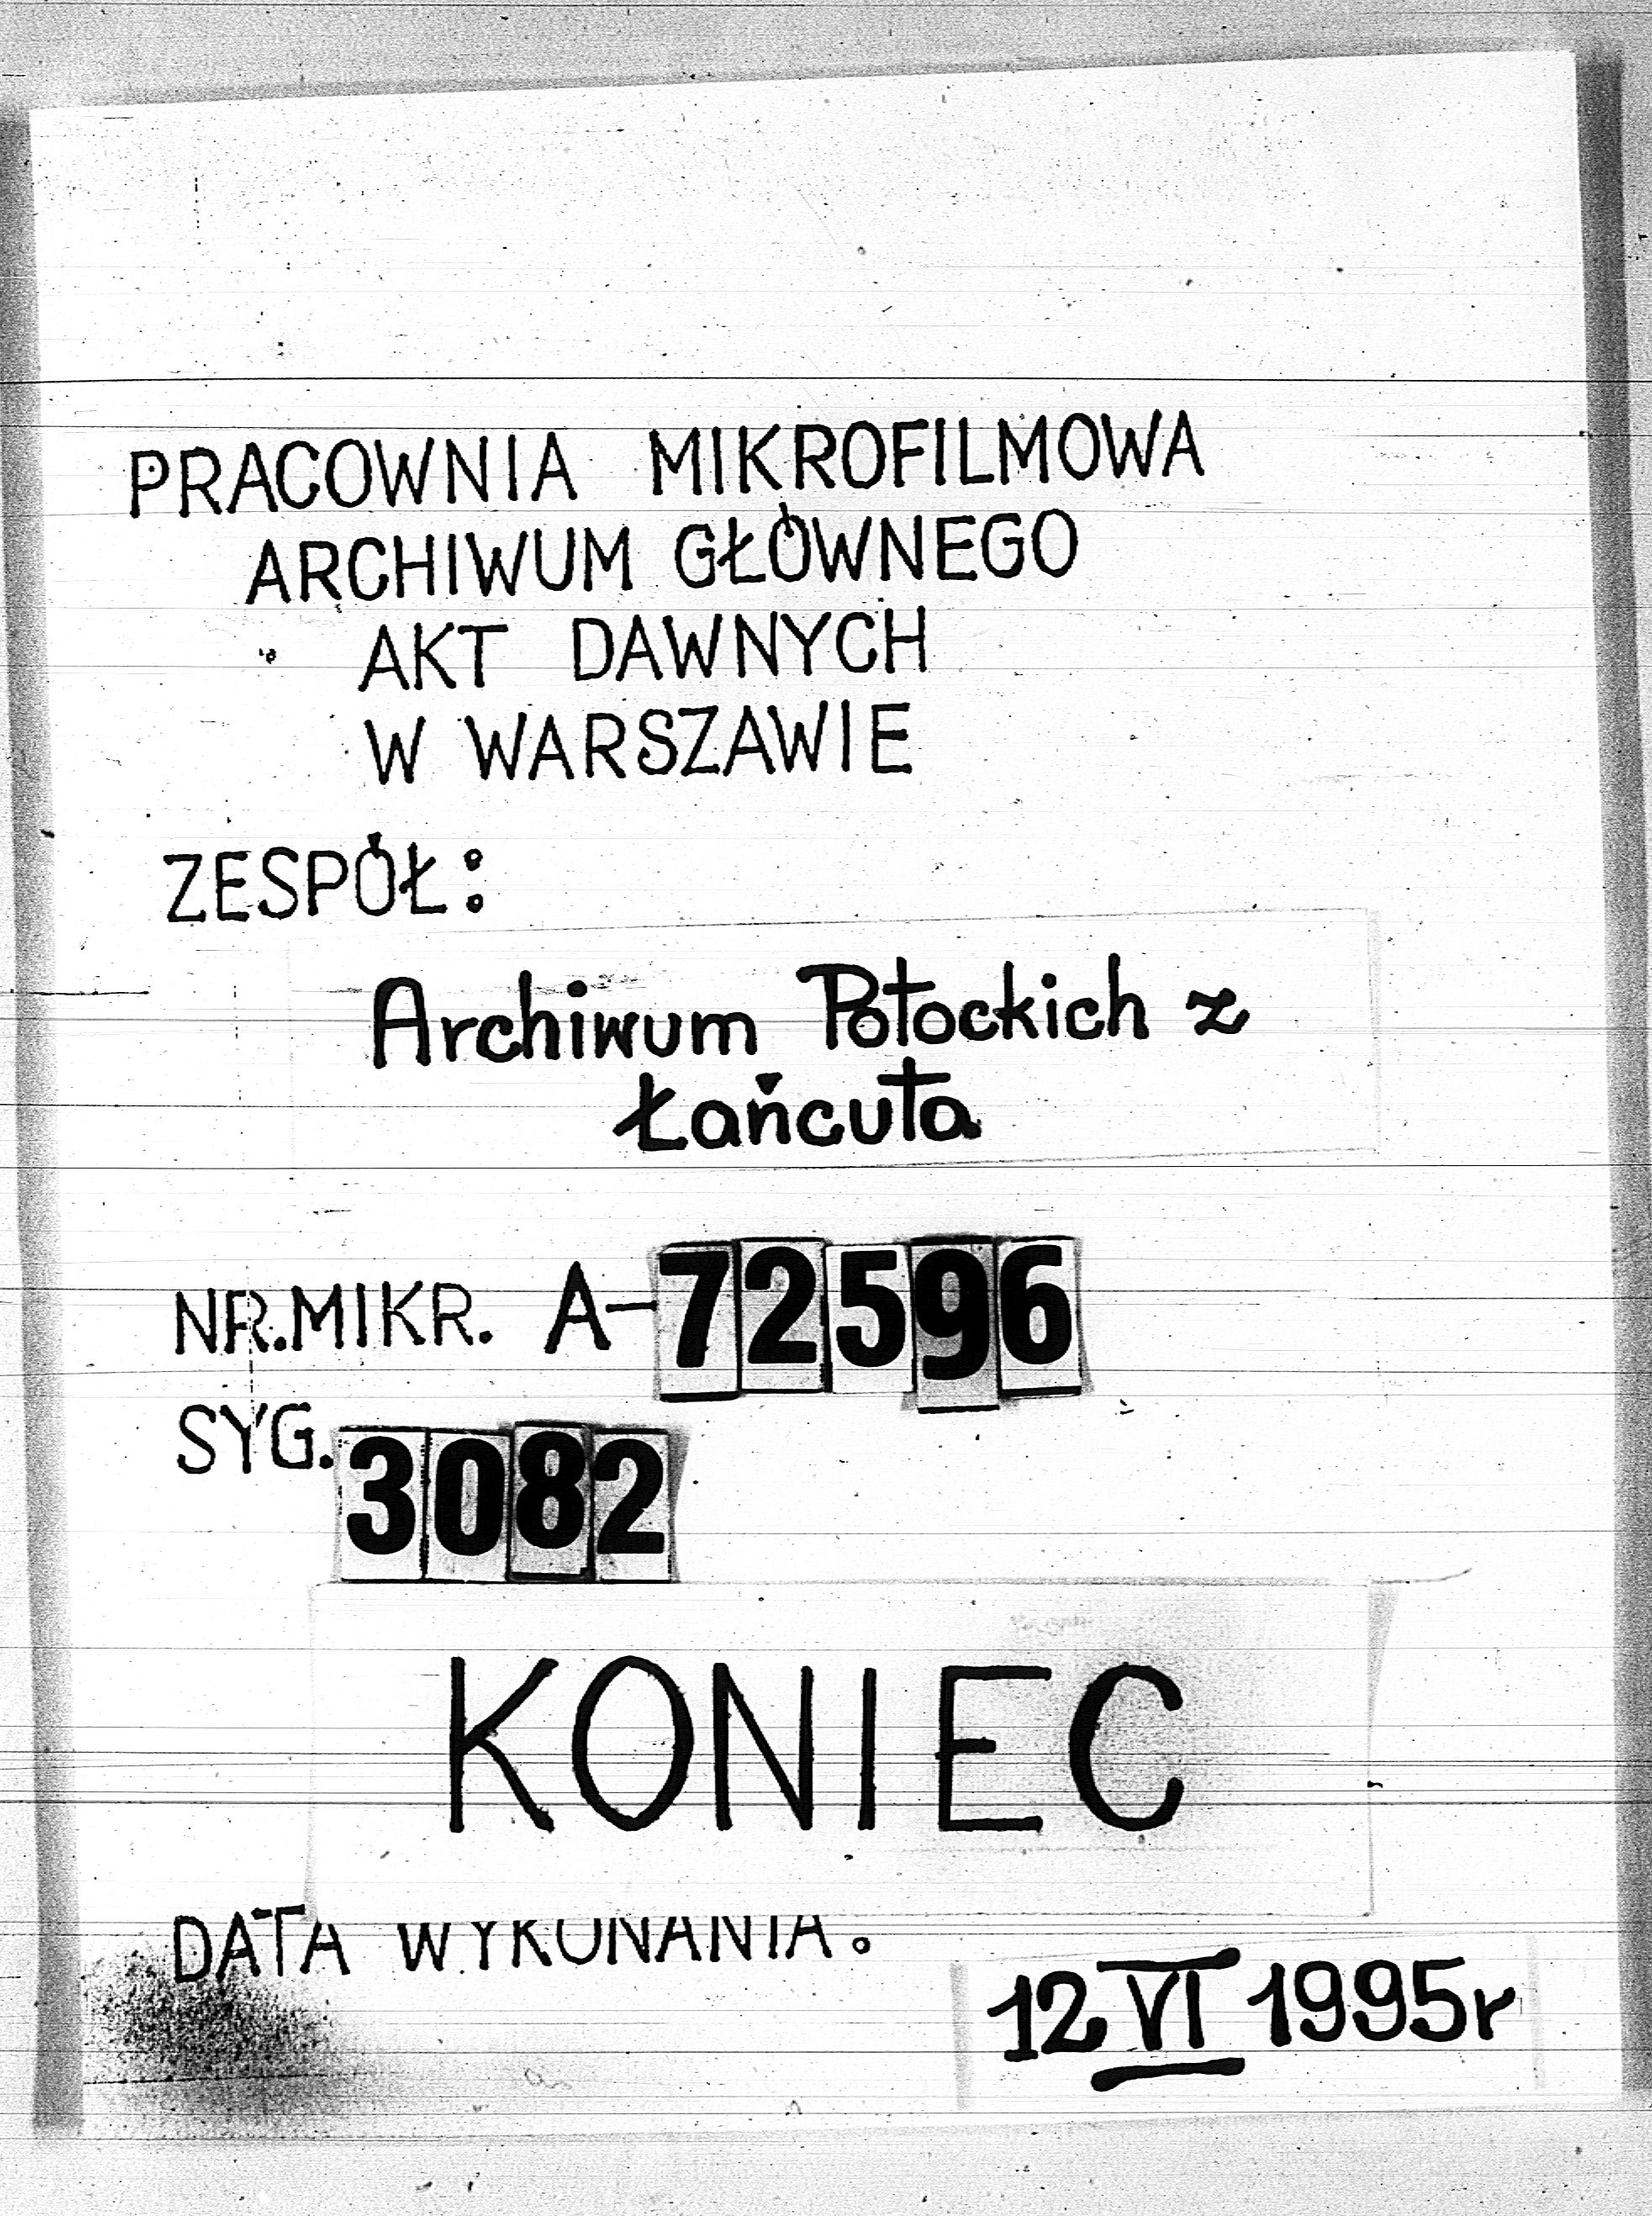 PRACOWNIA MIKROFILMOWA
ARCHIWUM GŁÓWNEGO
AKT DAWNYCH
W WARSZAWIE
ZESPÓŁ:
Archiwum Potockich z
Łańcuta
NR.MIKR. A-72596
SYG. 3082
KONIEC
DATA WYKONANIA.
12 VI 1995r